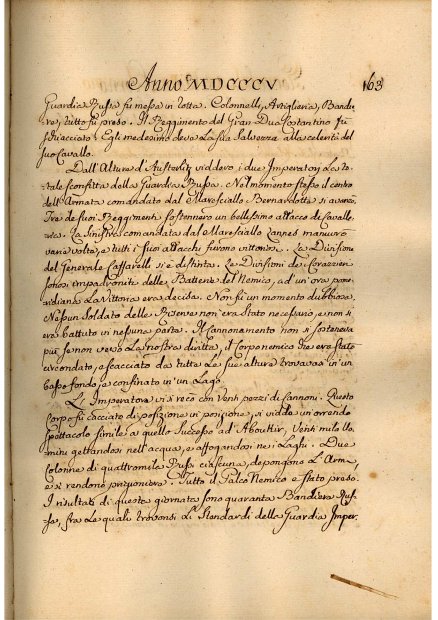 Anno MDCCCV 163
Guardia Russa fù messa in rotta. Colonnelli, Artiglieria, Bandie
re, tutto fu preso. Il Reggimento del Gran Duca Costantino fu
schiacciato: Egli medesimo deve la sua salvezza alla celerità del
suo Cavallo.
Dall'Alture d'Austerlitz viddero i due Imperatori la to
tale sconfitta della Guardia Russa. Nel momento stesso il centro
dell'Armata comandato dal Maresciallo Bernardotte si avanzò.
Tre de suoi Reggimenti sostennero un bellissimo attacco di Cavalle
ria. La sinistra comandata dal Maresciallo Lannes manuvrò
varie volte, e tutti i suoi attacchi furono vittoriosi. La Divisione
del Generale Caffarelli si è distinta. Le Divisioni de Corazzieri
sonosi impadronite delle Batterie del Nemico, ad un'ora pome
ridiana la Vittoria era decisa. Non fù un momento dubbiosa.
Nessun Soldato delle Riserve non era stato necessario, e non si
era battuto in nessuna parte. Il Cannonamento non si sosteneva
più se non verso la nostra diritta, il Corpo nemico che era stato
circondato, e scacciato da tutte le sue alture trovavasi in un
basso fondo, e confinato in un Lago.
L'Imperatore vi si recò con venti pezzi di Cannoni. Questo
Corpo fù cacciato di posizione in posizione, si vidde un orrendo
spettacolo simile a quello successo ad Aboukir, Venti mila Uo
mini gettandosi nell'acqua, e affogandosi nei Laghi. Due
Colonne di quattromila Russi ciascuna, depongono l'Armi,
e si rendono prigioniere. Tutto il Parco Nemico è stato preso.
I risultati di questa giornata sono quaranta Bandiere Rus
se, fra le quali trovansi li Standardi della Guardia Imper.